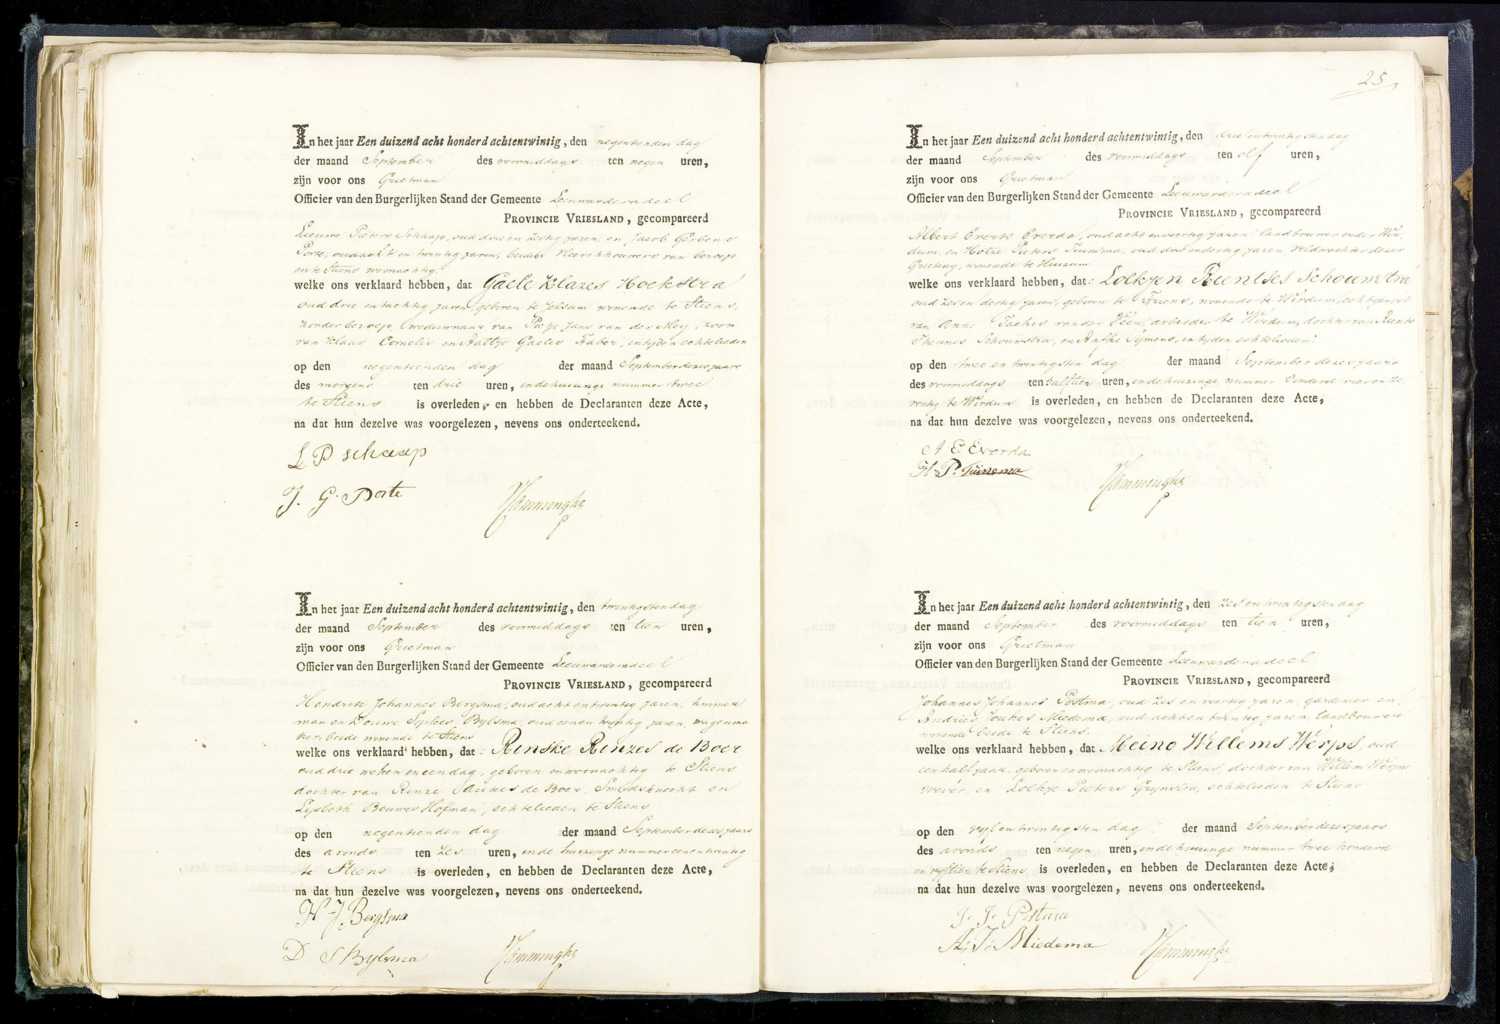 In het jaar Een duizend acht honderd achtentwintig, den negentienden dag
der maand September des voormiddags ten negen uren,
zijn voor ons Grietman
Officier van den Burgerlijken Stand der Gemeente Leeuwarderadeel
PROVINCIE VRIESLAND, gecompareerd
Leeuwe Pieters Schaap, oud drie en zestig jaren, en Jacob Gerbens
Porte, oud acht en twintig jaren, beide van beroep
en te Stiens woonachtig
welke ons verklaard hebben, dat Gaele Klazes Hoekstra
oud drie en tachtig jaren, geboren te Jelsum wonende te Stiens,
zonder beroep, weduwnaar van Jans van der Meij, zoon
van Klaas Cornelis en Aaltje Gaeles in tijden echtelieden
op den negentienden dag der maand September dezes jaars
des morgens ten drie uren, in de huizinge nummer twee
te Stiens is overleden, en hebben de Declaranten deze Acte,
na dat hun dezelve was voorgelezen, nevens ons onderteekend.
L P Schaap
J. G. Porte
In het jaar Een duizend acht honderd achtentwintig, den twintigsten dag
der maand September des voormiddags ten tien uren,
zijn voor ons Grietman
Officier van den Burgerlijken Stand der Gemeente Leeuwarderadeel
PROVINCIE VRIESLAND, gecompareerd
Hendrik Johannes Bergsma, oud acht en twintig jaren,
man en Douwe Bylsma, oud jaren, wagenma
ker, beide wonende te Stiens
welke ons verklaard hebben, dat Renske Renzes de Boer
oud drie weken en een dag, geboren en woonachtig te Stiens
dochter van Renze de Boer, Smidsknecht en
Lysbeth Bouwes Hofman, echtelieden te Stiens
op den negentienden dag der maand September dezes jaars
des avonds ten zes uren, in de huizinge nummer een en twintig
te Stiens is overleden, en hebben de Declaranten deze Acte,
na dat hun dezelve was voorgelezen, nevens ons onderteekend.
H. J. Bergsma
D S Bylsma
25.
In het jaar Een duizend acht honderd achtentwintig, den drie en twintigsten dag
der maand September des voormiddags ten elf uren,
zijn voor ons Grietman
Officier van den Burgerlijken Stand der Gemeente Leeuwarderadeel
PROVINCIE VRIESLAND, gecompareerd
Albert Everts Everda, oud acht en veertig jaren, landbouwer onder Wir
dum, en Hotze Pieters Tuinsma, oud jaren veldwachter dezer
Grietenij, wonende te Huizum
welke ons verklaard hebben, dat Lolkjen Reentses Schoumstra
oud zes en dertig jaren, geboren te Friens, wonende te Wirdum, echtgenoot
van Anne van der Veen, arbeider te Wirdum, dochter van Reents
Schoumstra, en Aafke Symens, in tijden echtelieden
op den twee en twintigsten dag der maand September dezes jaars
des voormiddags ten half tien uren, in de huizinge nummer honderd
te Wirdum is overleden, en hebben de Declaranten deze Acte,
na dat hun dezelve was voorgelezen, nevens ons onderteekend.
A E Everda
H. P. Tuinsma
In het jaar Een duizend acht honderd achtentwintig, den zes en twintigsten dag
der maand September des voormiddags ten tien uren,
zijn voor ons Grietman
Officier van den Burgerlijken Stand der Gemeente Leeuwarderadeel
PROVINCIE VRIESLAND, gecompareerd
Johannes Johannes Postma, oud zes en veertig jaren, gardenier en
Andries Miedema, oud acht en twintig jaren landbouwer
wonende beide te Stiens
welke ons verklaard hebben, dat Meino Willems Werps, oud
een half jaar, geboren en woonachtig te Stiens, dochter van Willem Werps
wever, en Lolkje Pieters echtelieden te Stiens
op den vijf en twintigsten dag der maand September dezes jaars
des avonds ten negen uren, in de huizinge nummer twee honderd
en vyftien te Stiens is overleden, en hebben de Declaranten deze Acte,
na dat hun dezelve was voorgelezen, nevens ons onderteekend.
J. J. Postma
A. J. Miedema